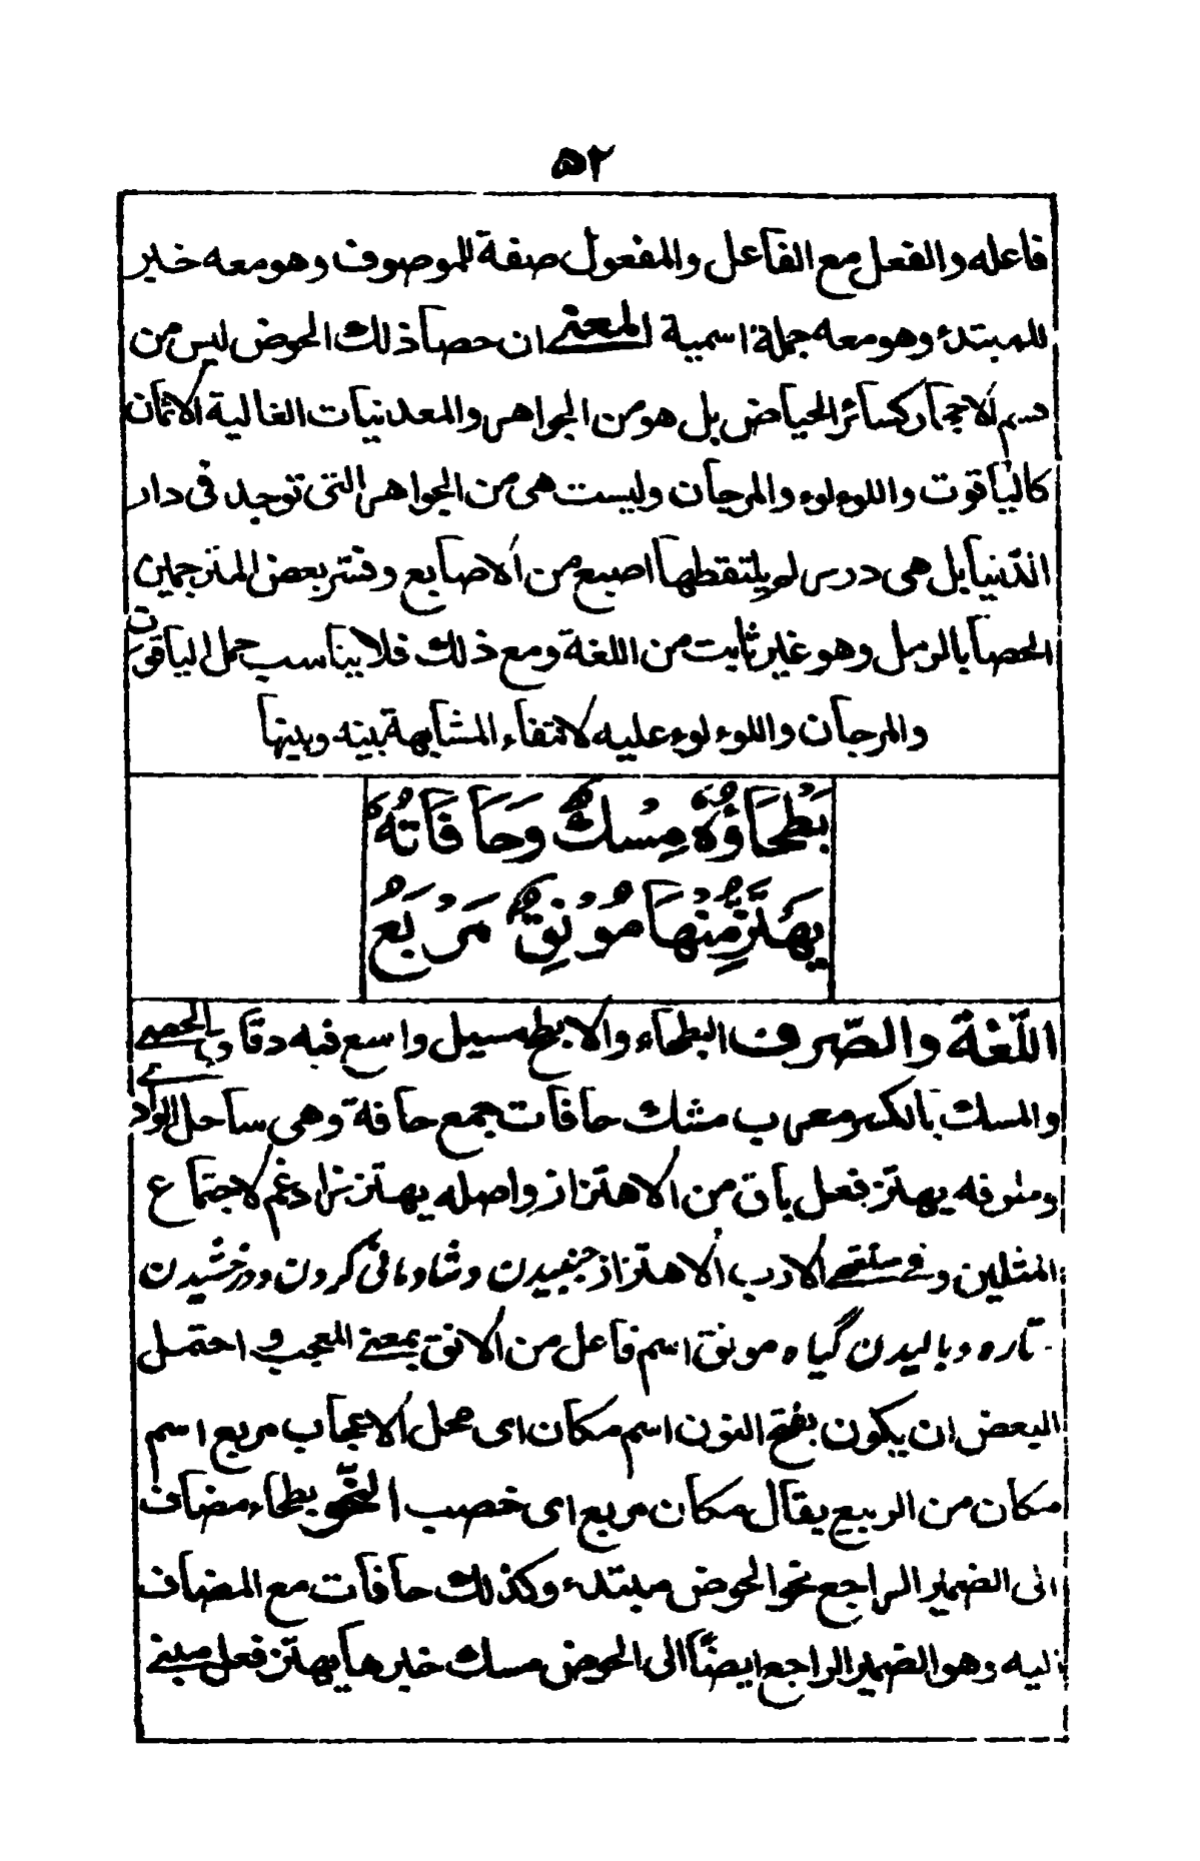 ٥٢
فاعله والفعل مع الفاعل والمفعول صفة للموصوف وهو معه خبر
للمبتدء وهو معه جملة اسمية المعنى ان حصا ذلك الحوض ليس من
قسم الاحجار كسائر الحياض بل هو من الجواهر والمعدنيات الغالية الاثمان
كالياقوت واللوءلوء والمرجان وليست هى من الجواهر التى توجد فى دار
الدّنيا بل هى درس لم يلتقطها اصبع من الاصابع وفسّر بعض المترجمين
الحصا بالرمل وهو غير ثابت من اللغة ومع ذلك فلا يناسب حمل الياقوت
والمرجان واللوء لوء عليه لانتفاء المشابهة بينه وبينها
بَطْحَاؤُهُ مِسْكٌ وَحَافَاتُهُ
يَهْتَزُّ مِنْهَا مُوْنِقٌ مَرْبَعُ
اللّغة والصّرف البطحاء والابطح مسيل واسع فيه دقاق الحصى
والمسك بالكسر معرب مشك حافات جمع حافة وهى ساحل الوادى
يهتز فعل من الاهتزاز واصله يهتزز ادغم لاجتماع
المثلين وفى منتهى الادب الاهتزاز جنبيدن وشادمانى كردن ودرخشيدن
تاره وباليدن گياه مونق اسم فاعل من الانق بمعنى المعجب و احتمل
البعض ان يكون بفتح النون اسم مكان اى محل الاعجاب مربع اسم
مكان من الربيع يقال مكان مربع اى خصب النّحو بطحاء مضاف
الى الضمير الراجع نحو الحوض مبتدء وكذلك حافات مع المضاف
اليه وهو الضمير الراجع ايضاً الى الحوض مسك خبرها يهتز فعل مبنى